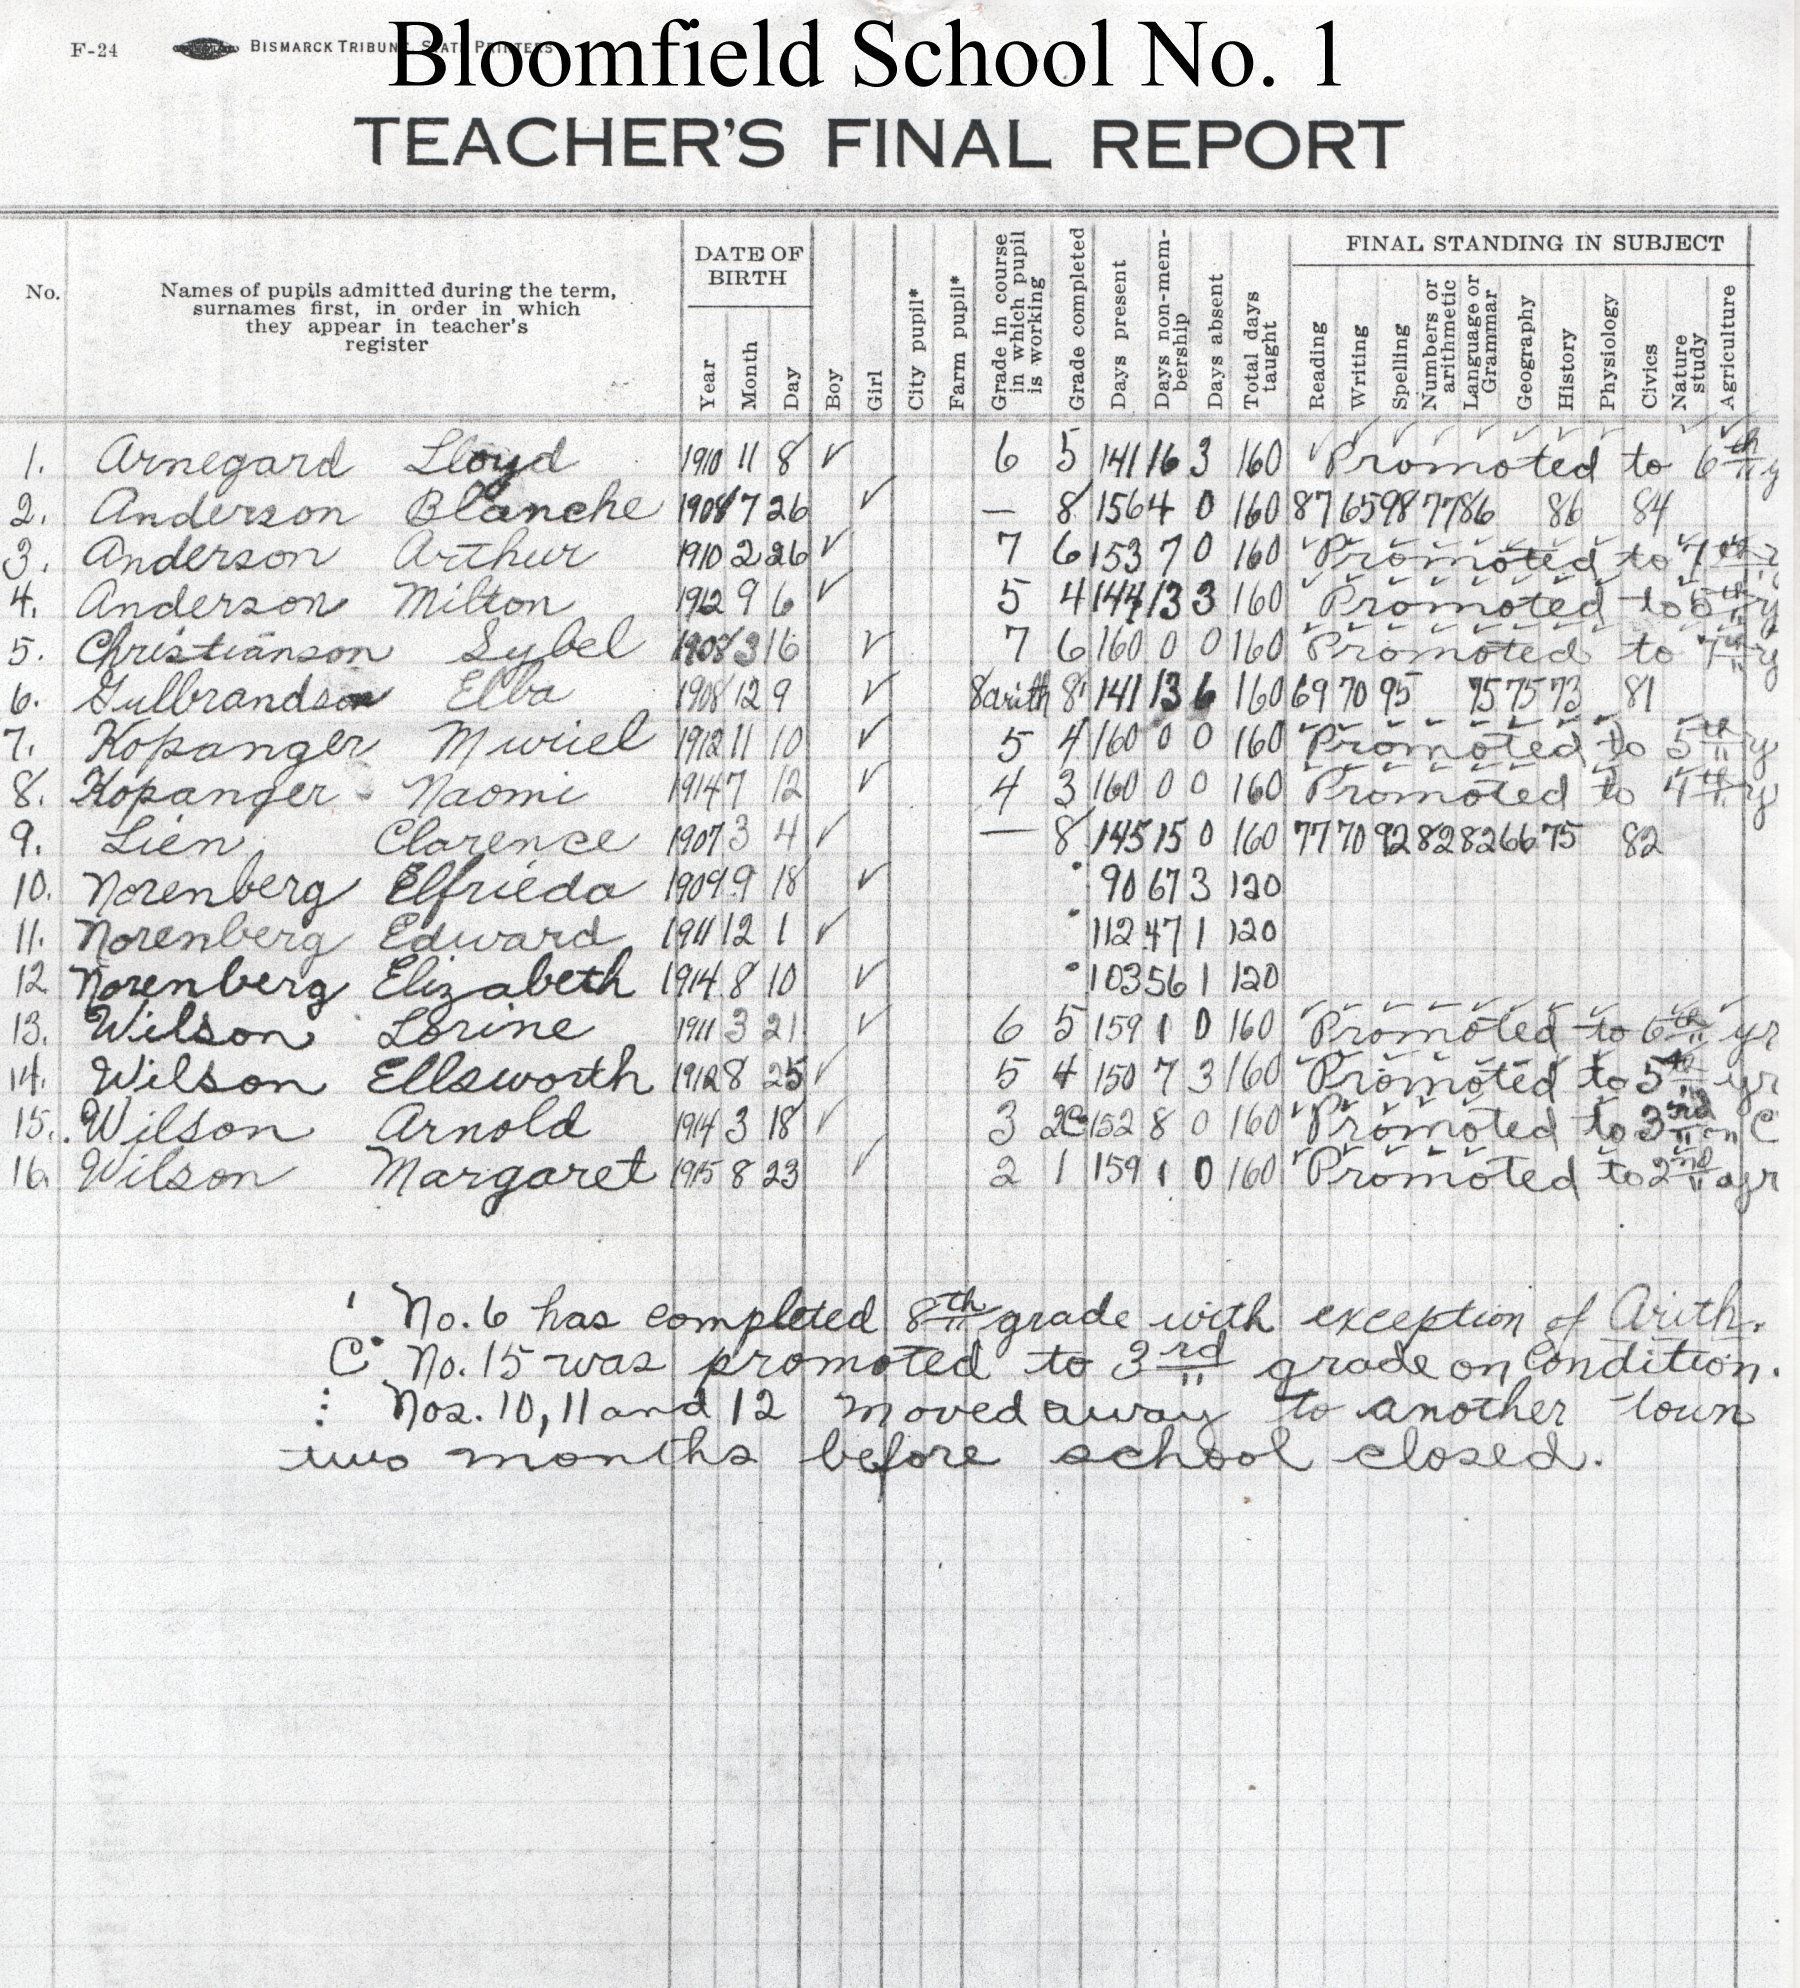 Bloomfield School No. 1
F-24 BISMARCK TRIBUNE, STATE PRINTERS
TEACHER'S FINAL REPORT
No. Names of pupils admitted during the term, surnames first, in order in which they appear in teacher's register DATE OF BIRTH Year Month Day Boy Girl City pupil* Farm pupil* Grade in course in which pupil is working Grade completed Days present Days non-mem-bership Days absent Total days taught FINAL STANDING IN SUBJECT Reading Writing Spelling Numbers or arithmetic Language or Grammar Geography History Physiology Civics Nature study Agriculture
1. Arnegard Lloyd 1910 11 8 ✓ 6 5 141 16 3 160 Promoted to 6th y
2. Anderson Blanche 1908 7 26 ✓ — 8 156 4 0 160 87 65 98 77 86 86 84
3. Anderson Arthur 1910 2 26 ✓ 7 6 153 7 0 160 Promoted to 7th
4. Anderson Milton 1912 9 6 ✓ 5 4 144 13 3 160 Promoted to 5th y
5. Christianson Sybel 1908 3 16 ✓ 7 6 160 0 0 160 Promoted to 7th y
6. Gulbrandson Elba 1908 12 9 ✓ 8 arith 8' 141 13 6 160 69 70 95 75 75 73 81
7. Kopanger Muriel 1912 11 10 ✓ 5 4 160 0 0 160 Promoted to 5th y
8. Kopanger Naomi 1914 7 12 ✓ 4 3 160 0 0 160 Promoted to 4th y
9. Lien, Clarence 1907 3 4 ✓ — 8 145 15 0 160 77 70 92 82 82 66 75 82
10. Norenberg Elfrieda 1909 9 18 ✓ • 90 67 3 120
11. Norenberg Edward 1911 12 1 ✓ • 112 47 1 120
12 Norenberg Elizabeth 1914 8 10 ✓ • 103 56 1 120
13. Wilson Lorine 1911 3 21 ✓ 6 5 159 1 0 160 Promoted to 6th yr
14. Wilson Ellsworth 1912 8 25 ✓ 5 4 150 7 3 160 Promoted to 5th yr
15. Wilson Arnold 1914 3 18 ✓ 3 2C 152 8 0 160 Promoted to 3rd on C
16. Wilson Margaret 1915 8 23 ✓ 2 1 159 1 0 160 Promoted to 2nd yr
' No. 6 has completed 8th grade with exception of Arith.
C• No. 15 was promoted to 3rd grade on Condition.
: Nos. 10, 11 and 12 moved away to another town
two months before school closed.